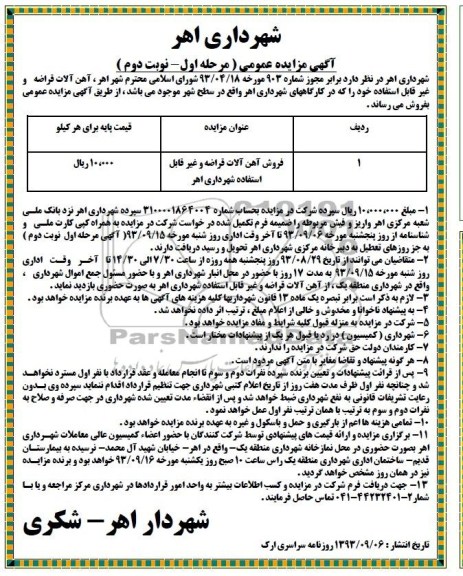 شهرداری اهر
آگهی مزایده عمومی ( مرحله اول– نوبت دوم )
شهرداری اهر در نظر دارد برابر مجوز شماره ۹۰۳ مورخه ۹۳/۰۴/۱۸ شورای اسلامی محترم شهر اهر ، آهن آلات قراضه و
غیر قابل استفاده خود را که در کارگاههای شهرداری اهر واقع در سطح شهر موجود می باشد ، از طریق آگهی مزایده عمومی
بفروش می رساند .
ردیف عنوان مزایده قیمت پایه برای هر کیلو
۱ فروش آهن آلات قراضه و غیر قابل ۱۰،۰۰۰ ریال
استفاده شهرداری اهر
۱- مبلغ ۱۰،۰۰۰،۰۰۰ ریال سپرده شرکت در مزایده بحساب شماره ۳۱۰۰۰۰۱۸۶۴۰۰۴ سپرده شهرداری اهر نزد بانک ملی
شعبه مرکزی اهر واریز و فیش مربوطه را ضمیمه فرم تکمیل شده در خواست شرکت در مزایده به همراه کپی کارت ملی و
شناسنامه از روز پنجشنبه مورخه ۹۳/۰۹/۰۶ تا آخر وقت اداری روز شنبه مورخه ۹۳/۰۹/۱۵( آگهی مرحله اول نوبت دوم )
به جز روزهای تعطیل به دبیرخانه مرکزی شهرداری اهر تحویل و رسید دریافت دارند.
۲- متقاضیان می توانند از تاریخ ۹۳/۰۸/۲۹ روز پنجشنبه همه روزه از ساعت ۷/۳۰ الی ۱۴/۳۰ تا آخر وقت اداری
روز شنبه مورخه ۹۳/۰۹/۱۵ به مدت ۱۷ روز با حضور در محل انبار شهرداری اهر و با حضور مسئول جمع اموال شهرداری ،
واقع در شهرداری منطقه یک ، از آهن آلات قراضه و غیر قابل استفاده شهرداری اهر به صورت حضوری بازدید نماید.
۳- لازم به ذکر است برابر تبصره یک ماده ۱۳ قانون شهرداریها کلیه هزینه های آگهی ها به عهده برنده مزایده خواهد بود.
۴- به پیشنهاد ناخوانا و مخدوش و خالی از اعلام مبلغ ، ترتیب اثر داده نخواهد شد.
۵- شرکت در مزایده به منزله قبول کلیه شرایط و مفاد مزایده خواهد بود.
۶- شهرداری ( کمیسیون ) در رد یا قبول هر یک از پیشنهادات مختار است .
۷- کارمندان دولت حق شرکت در مزایده را ندارند.
۸- هر گونه پیشنهاد و تقاضا مغایر با متن آگهی مردود است.
۹- پس از قرائت پیشنهادات و تعیین برنده سپرده نفرات دوم و سوم تا انجام معامله و عقد قرارداد با نفر اول مسترد نخواهد
شد و چنانچه نفر اول ظرف مدت هفت روز از تاریخ اعلام کتبی شهرداری جهت تنظیم قرارداد اقدام ننماید سپرده وی بدون
رعایت تشریفات قانونی به نفع شهرداری ضبط خواهد شد و پس از انقضاء مدت تعیین شده شهرداری در جهت صرفه و صلاح به
نفرات دوم و سوم به ترتیب با همان ترتیب نفر اول عمل خواهد نمود.
۱۰- تمامی هزینه ها اعم از بارگیری و حمل و باسکول و غیره به عهده برنده مزایده خواهد بود.
۱۱- برگزاری مزایده و ارائه قیمت های پیشنهادی توسط شرکت کنندگان با حضور اعضاء کمیسیون عالی معاملات شهرداری
اهر بصورت حضوری در محل نمازخانه شهرداری منطقه یک– واقع در اهر– خیابان شهید آل محمد– نرسیده به بیمارستان
قدیم– ساختمان اداری شهرداری منطقه یک راس ساعت ۱۰ صبح روز یکشنبه مورخه ۹۳/۰۹/۱۶ خواهد بود و برنده مزایده
نیز در همان روز مشخص خواهد گردید .
۱۳- جهت دریافت فرم شرکت در مزایده و کسب اطلاعات بیشتر به واحد امور قراردادها در شهرداری مرکز مراجعه و یا با
شمار ۲-۴۴۲۳۲۴۰۱-۰۴۱ تماس حاصل فرمایند .
شهردار اهر– شکری
تاریخ انتشار : ۱۳۹۳/۰۹/۰۶ روزنامه سراسری ارک